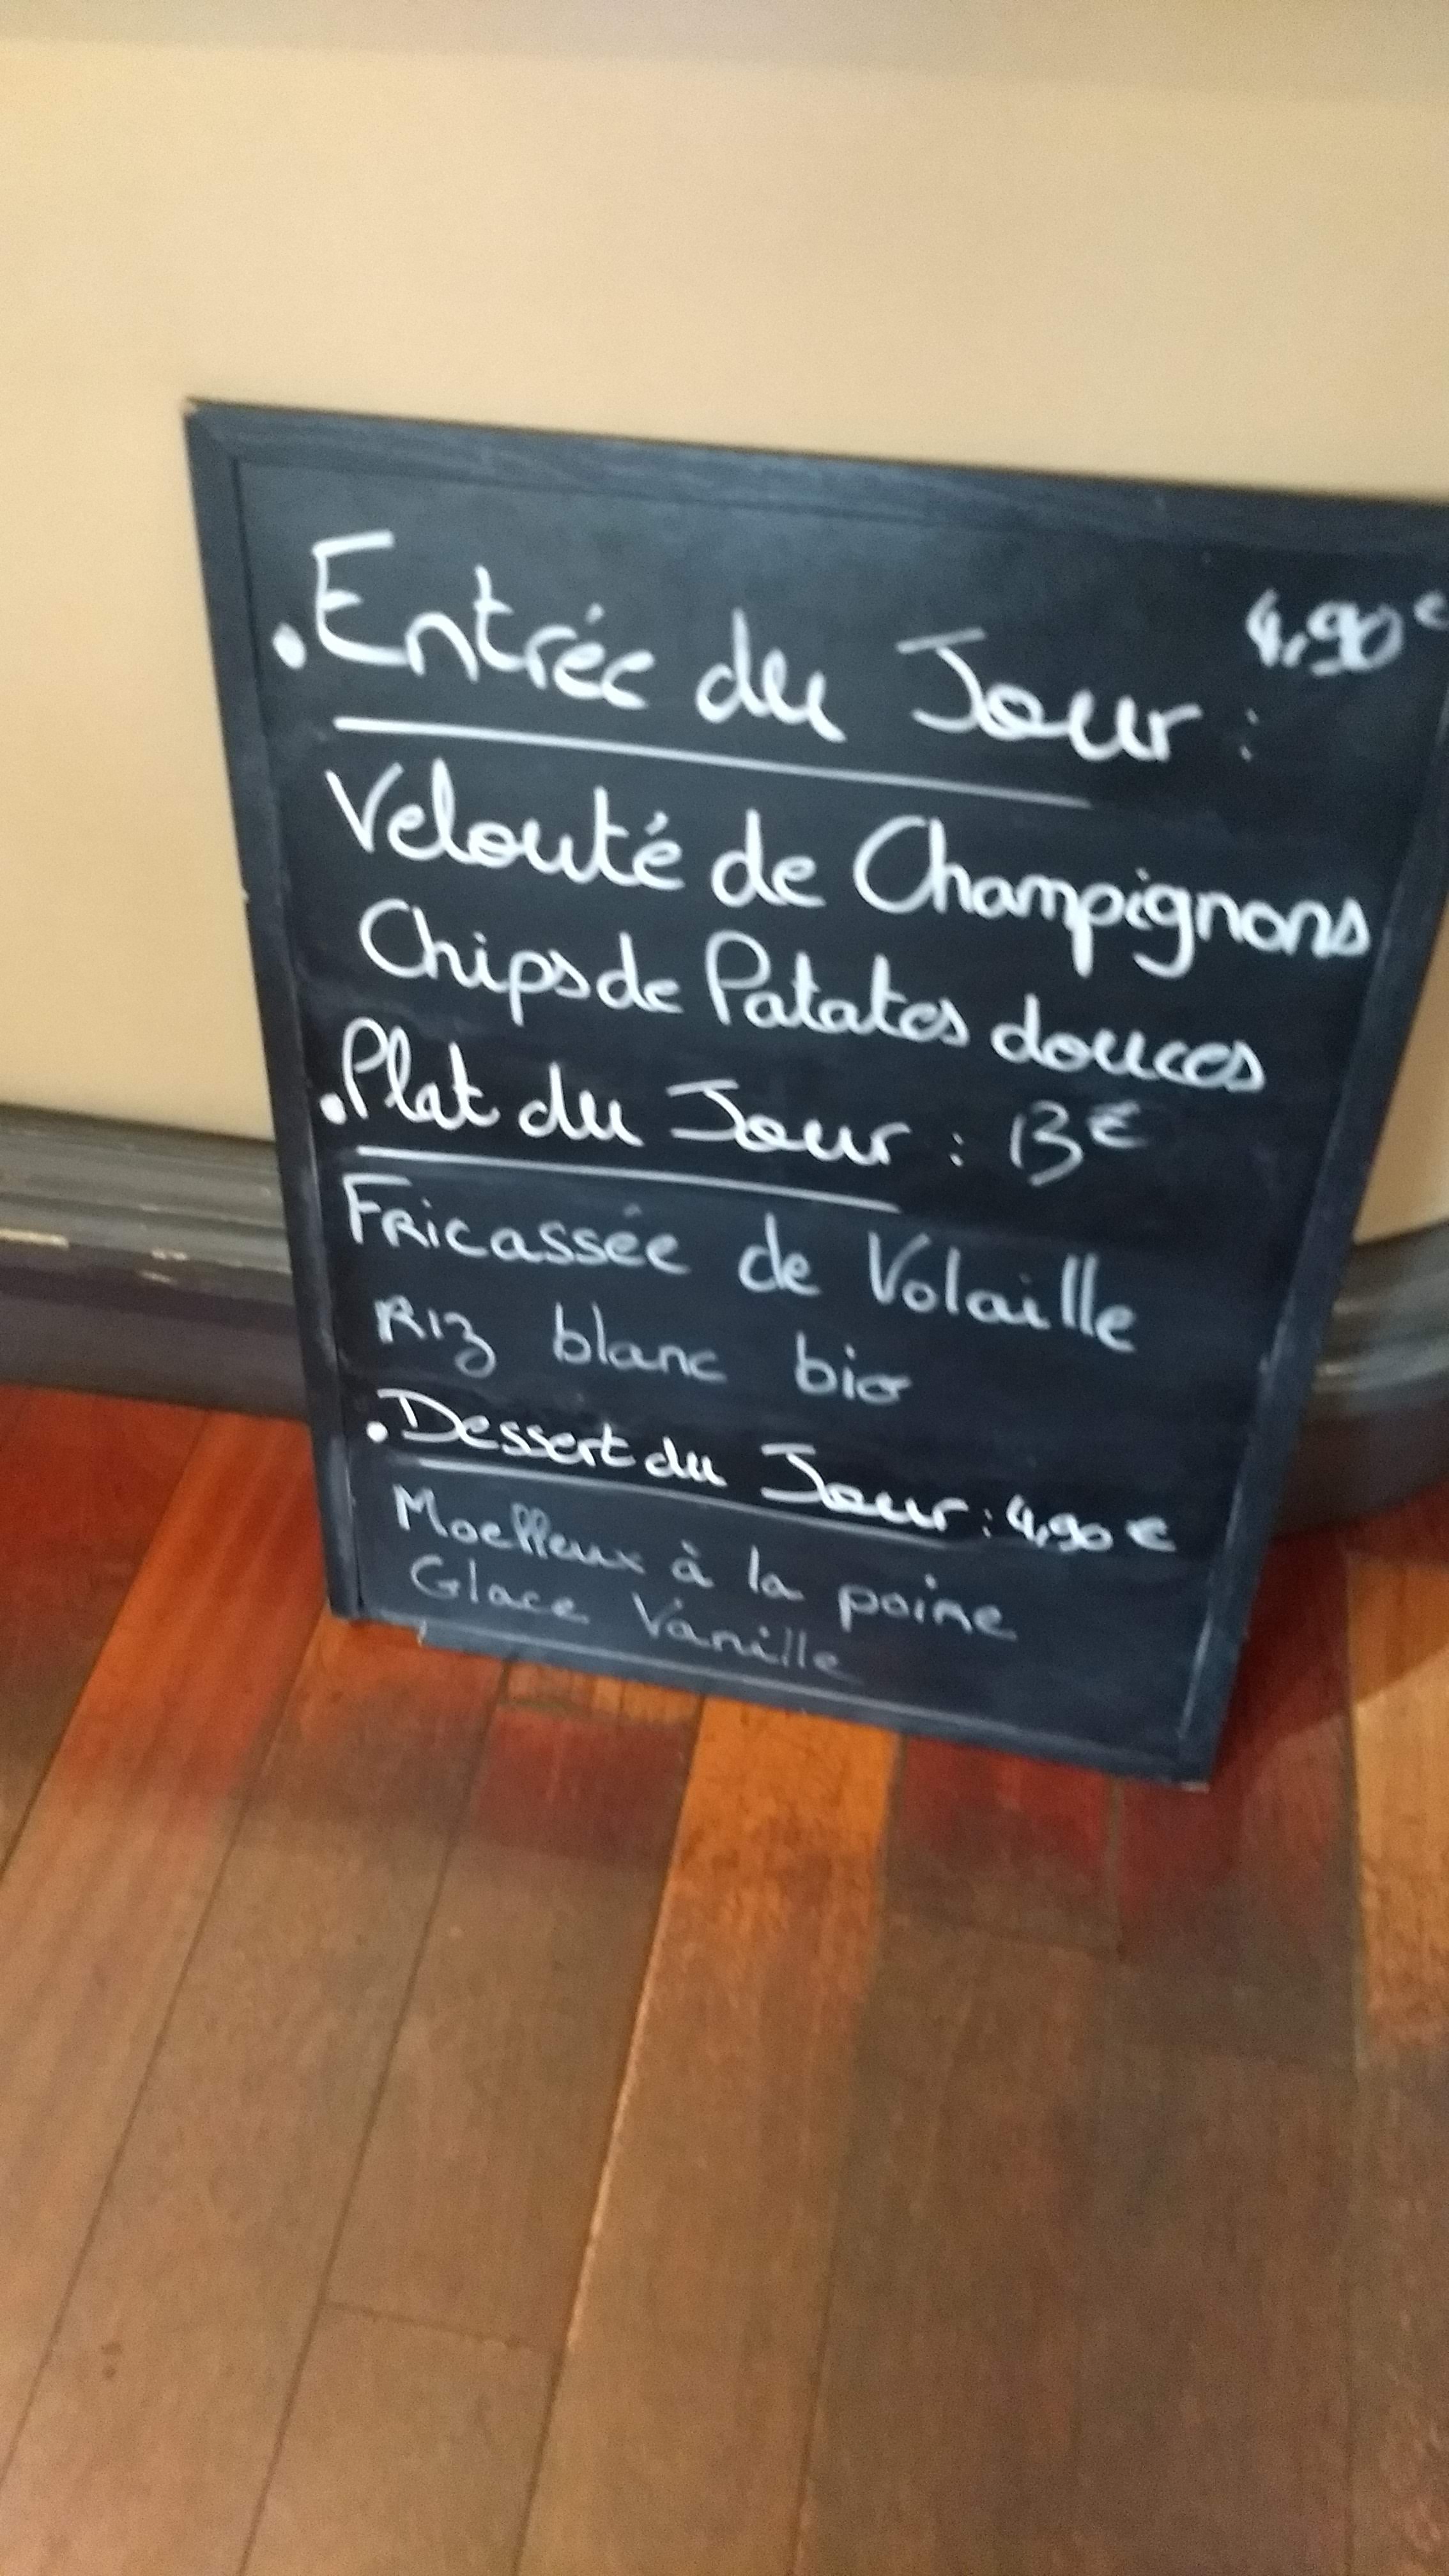 • Entrée du Jour : 4,90 €
Velouté de Champignons
Chips de Patates douces
• Plat du Jour : 13 €
Fricassée de Volaille
Riz blanc bio
• Dessert du Jour : 4,90 €
Moelleux à la poire
Glace Vanille